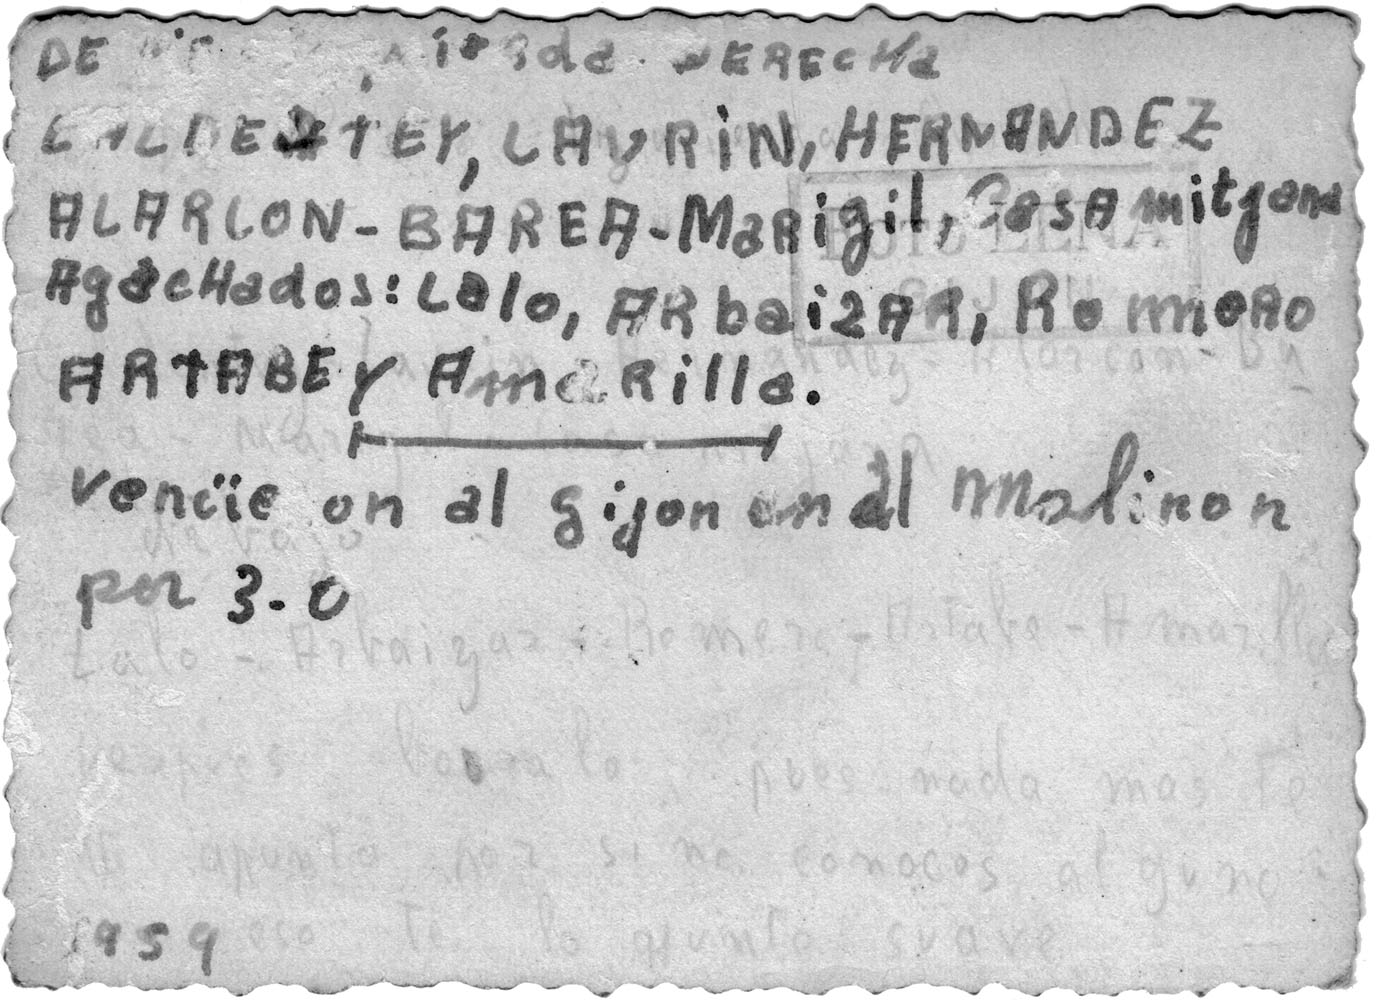 DE izquierda DERECHA
CALDENTEY, LAURIN, HERNANDEZ
ALARCON-BAREA-Marigil, Casamitjana
Agachados: Lalo, ARbaizAR, Romero
ARTABE y Amarilla.
vencie on al gijon en el Molinon
por 3-0
FOTO LENA
GIJON
Laurin Hernandez - Alarcon - Ba
rea - Marigil
debajo
Lalo - Arbaizar - Romero - Artabe - Amarilla
despues borralo, pues nada mas Te
apunto por si no conoces alguno
eso Te lo apunto suave
1959